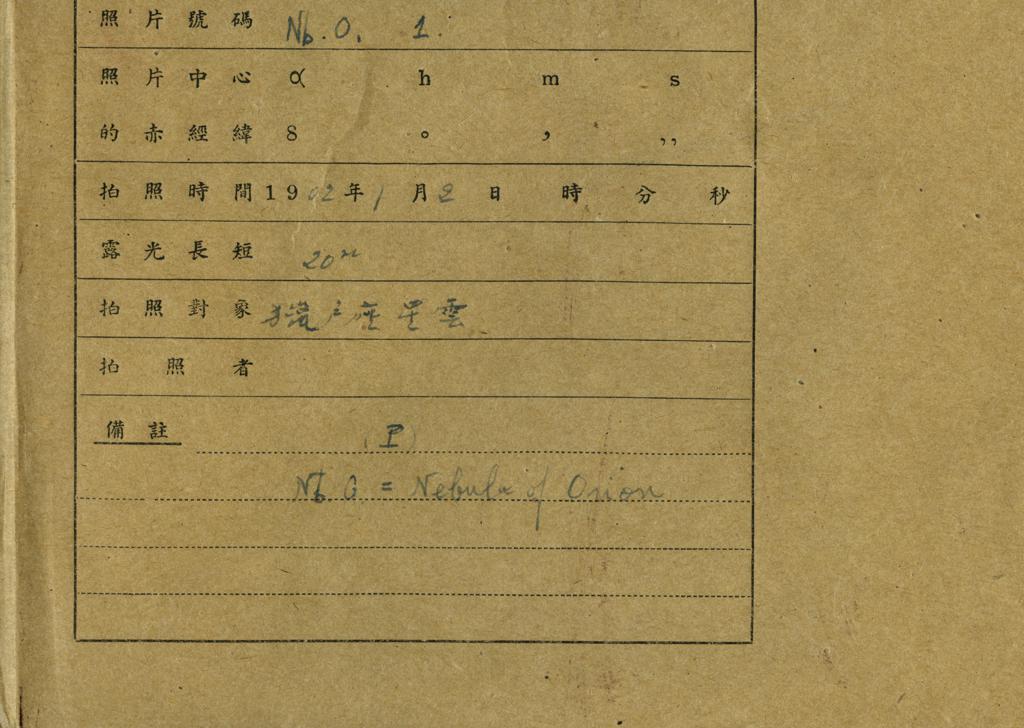 照片號碼 Nb. O. 1.
照片中心 α h m s
的赤經緯 δ ° ′ ″
拍照時間 1902年1月2日 時 分 秒
露光長短 20m
拍照對象 獵戶座星雲
拍照者
備註 (P)
Nb O = Nebula of Orion